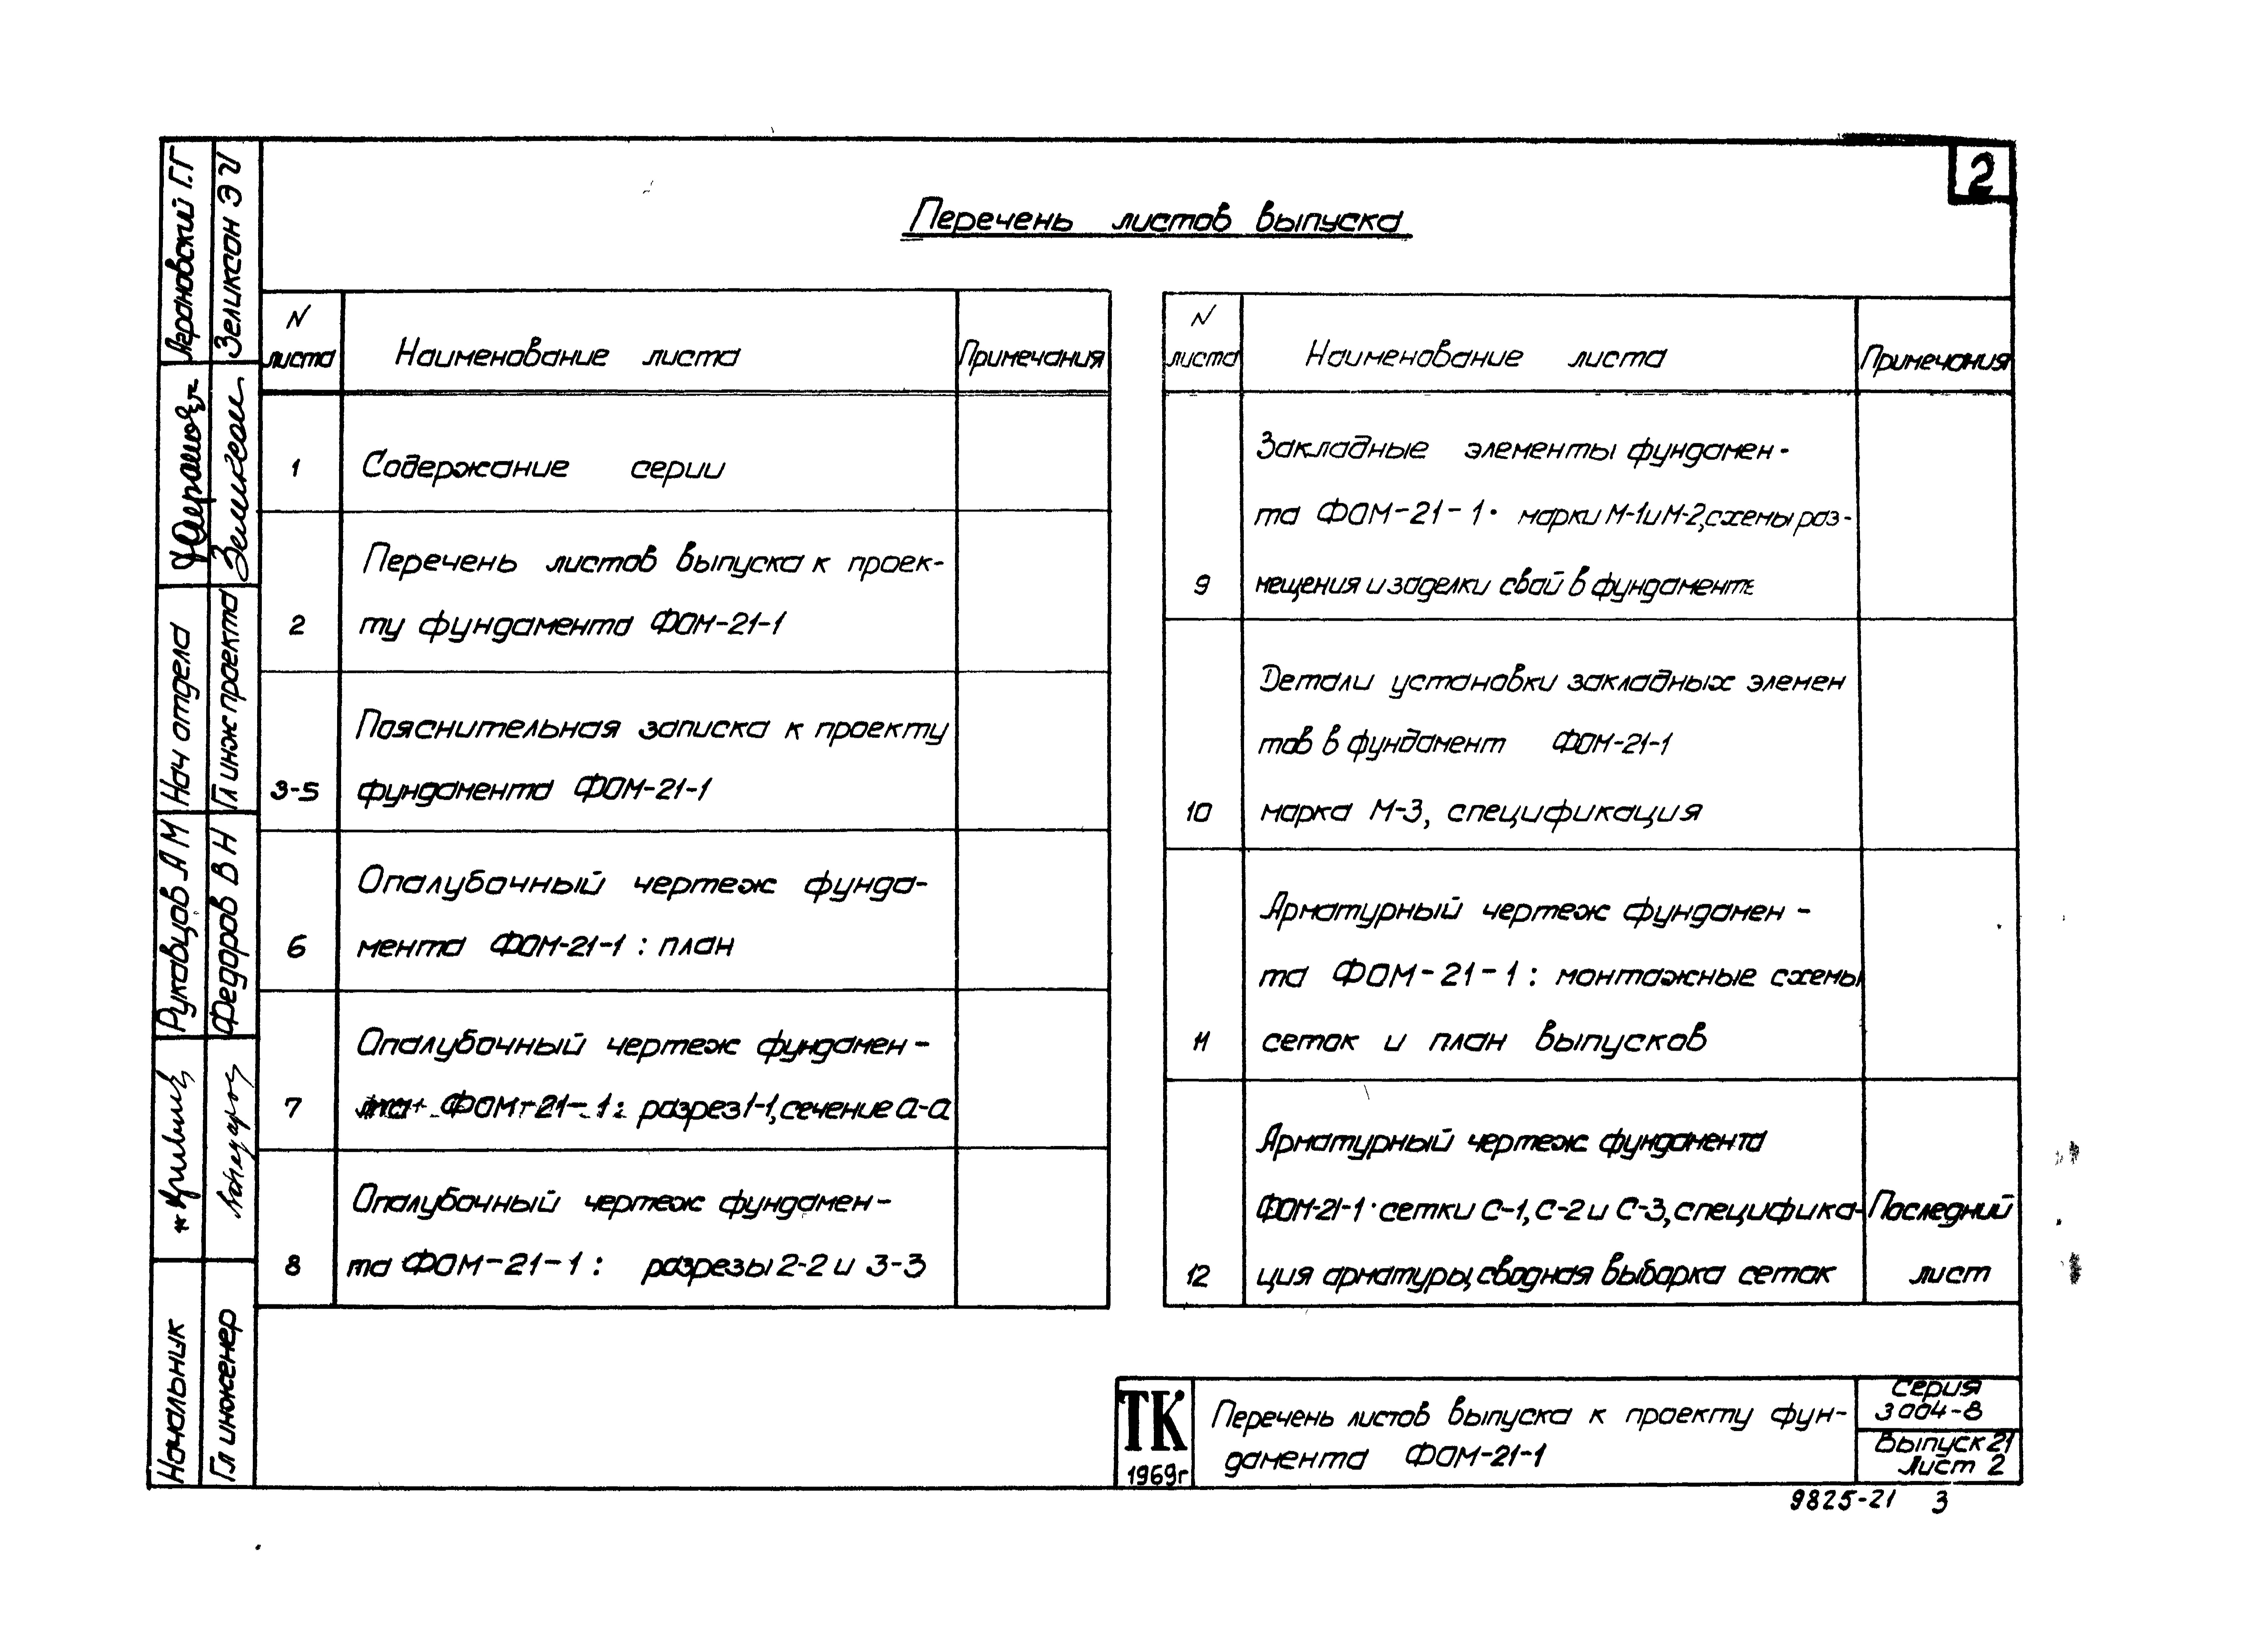 2
Перечень листов выпуска
N
листа
Наименование листа
Примечания
1
Содержание серии
Перечень листов выпуска к проек-
2
ту фундамента ФОМ-21-1
Пояснительная записка к проекту
3-5
фундамента ФОМ-21-1
Опалубочный чертеж фунда-
6
мента ФОМ-21-1 : план
Опалубочный чертеж фундамен-
7
та ФОМ-21-1: разрез 1-1, сечение а-а
Опалубочный чертеж фундамен-
8
та ФОМ-21-1: разрезы 2-2 и 3-3
N
листа
Наименование листа
Примечания
Закладные элементы фундамен-
та ФОМ-21-1· марки М-1 и М-2, схемы раз-
9
мещения и заделки свай в фундаменте
Детали установки закладных элемен
тов в фундамент ФОМ-21-1
10
марка М-3, спецификация
Арматурный чертеж фундамен-
та ФОМ-21-1: монтажные схемы
11
сеток и план выпусков
Арматурный чертеж фундамента
ФОМ-21-1· сетки С-1, С-2 и С-3, специфика-
Последний
12
ция арматуры, сводная выборка сеток
лист
ТК
1969г
Перечень листов выпуска к проекту фун-
дамента ФОМ-21-1
Серия
3 004-8
Выпуск 21
Лист 2
9825-21 3
Начальник
Рукавцов А М
Нач отдела
Аграновский Г.Г
Гл инженер
Федоров В Н
Гл инж проекта
Зеликсон Э И